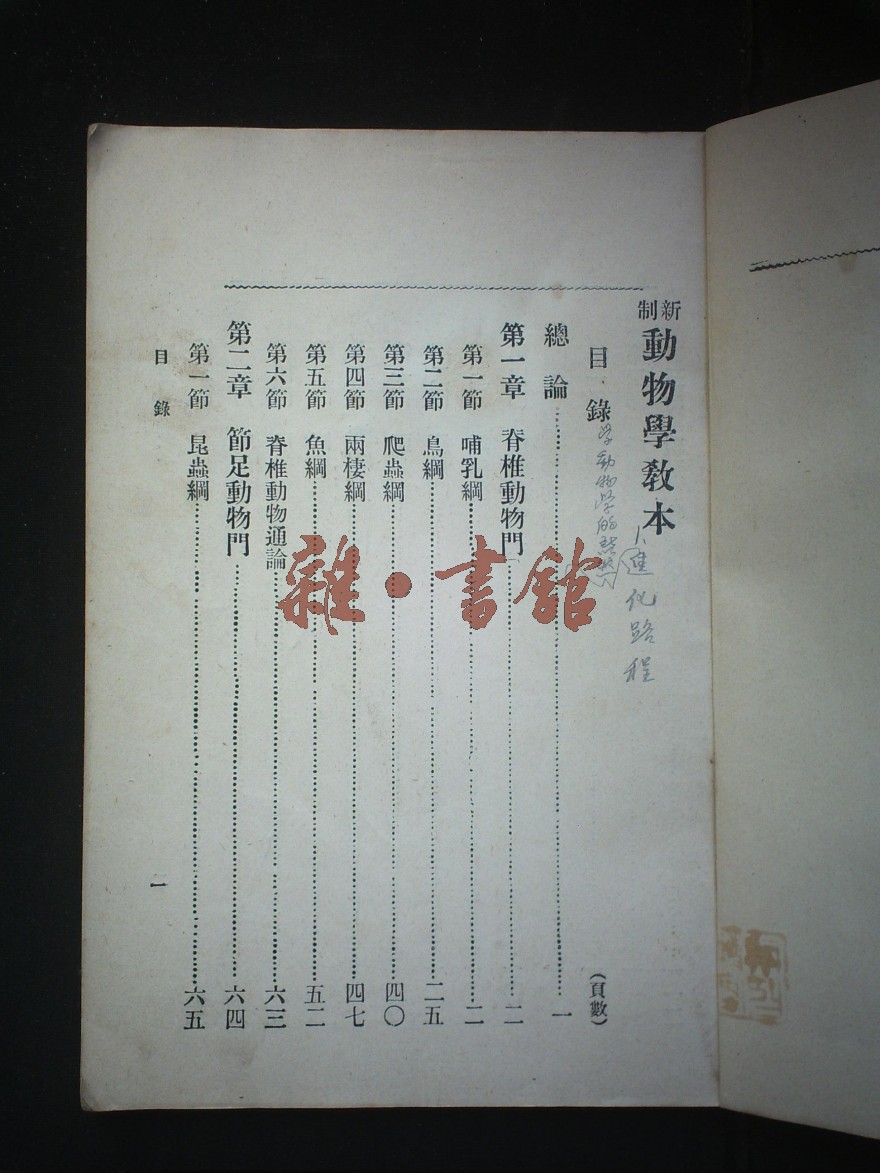 新制動物學教本
目錄
(頁數)
總論……一
第一章 脊椎動物門……二
第一節 哺乳綱……二
第二節 鳥綱……二五
第三節 爬蟲綱……四〇
第四節 兩棲綱……四七
第五節 魚綱……五二
第六節 脊椎動物通論……六三
第二章 節足動物門……六四
第一節 昆蟲綱……六五
目錄
一
進化路程
雜·書館